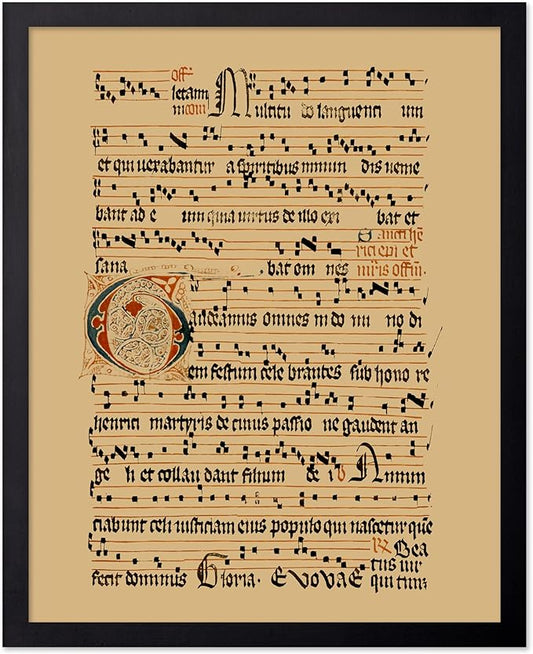 off
letam
ni com Multitu do languenti um
et qui uexabantur a spiritibus inmun dis ueme
bant ad e um quia uirtus de illo exi bat et
Sancti he
rici epi et
sana bat om nes m̄ris offm̄.
Gaudeamus omnes in do mi no di
em festum cele brantes sub hono re
henrici martyris de cuius passio ne gaudent an
ge li et collau dant filium de i Annun
ciabunt celi iusticiam eius populo qui nascetur que
R Bea
fecit dominus Gloria. EVOVAE tus uir
qui tim